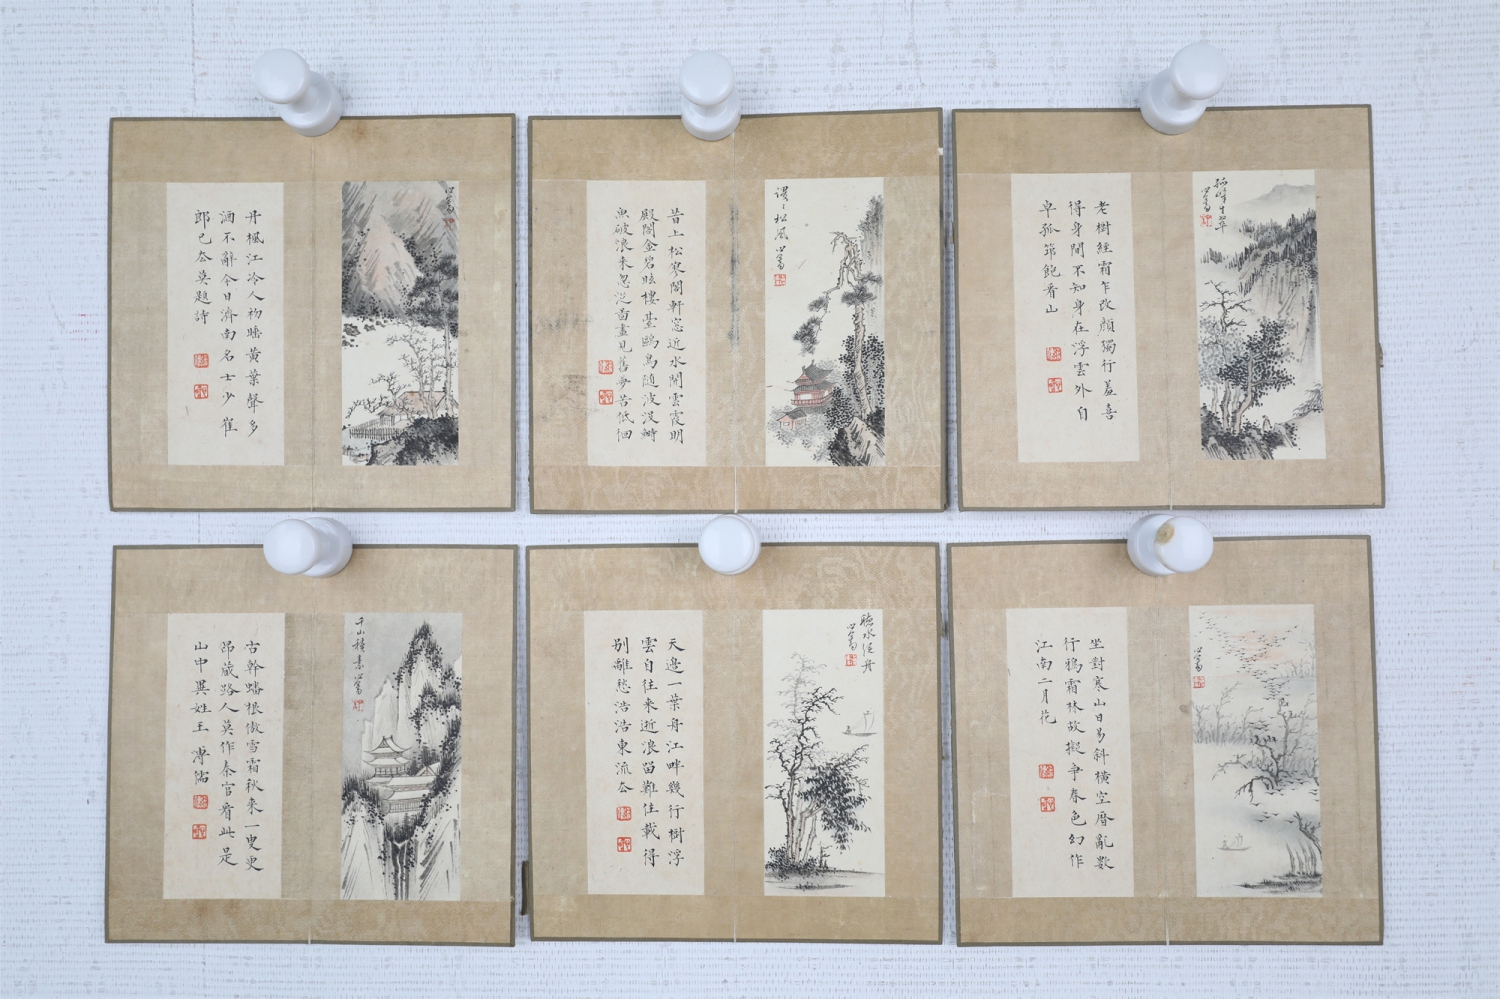 丹楓江冷人初
黃葉聲多
酒不辭今日濟南名士少崔
郎已去莫題詩
心畬
昔上松寥閣軒窓近水開雲霞明
殿閣金碧眩樓臺鷗鳥隨波沒
魚破浪來忽從
畫見舊
苦低徊
謖〻松風 心畬
老樹經霜乍改顏獨行
喜
得身閒不知身在浮雲外自
卓孤筇飽看山
孤峰
翠
心畬
古幹蟠根傲雪霜秋來一叟更
昂藏路人莫作秦官看此是
山中異姓王 溥儒
千山積素 心畬
天邊一葉舟江畔幾行樹浮
雲自往來逝浪留難住載得
別離愁浩浩東流去
聽水
舟
心畬
坐對寒山日易斜橫空
亂數
行鴉霜林故擬爭春色幻作
江南二月花
心畬